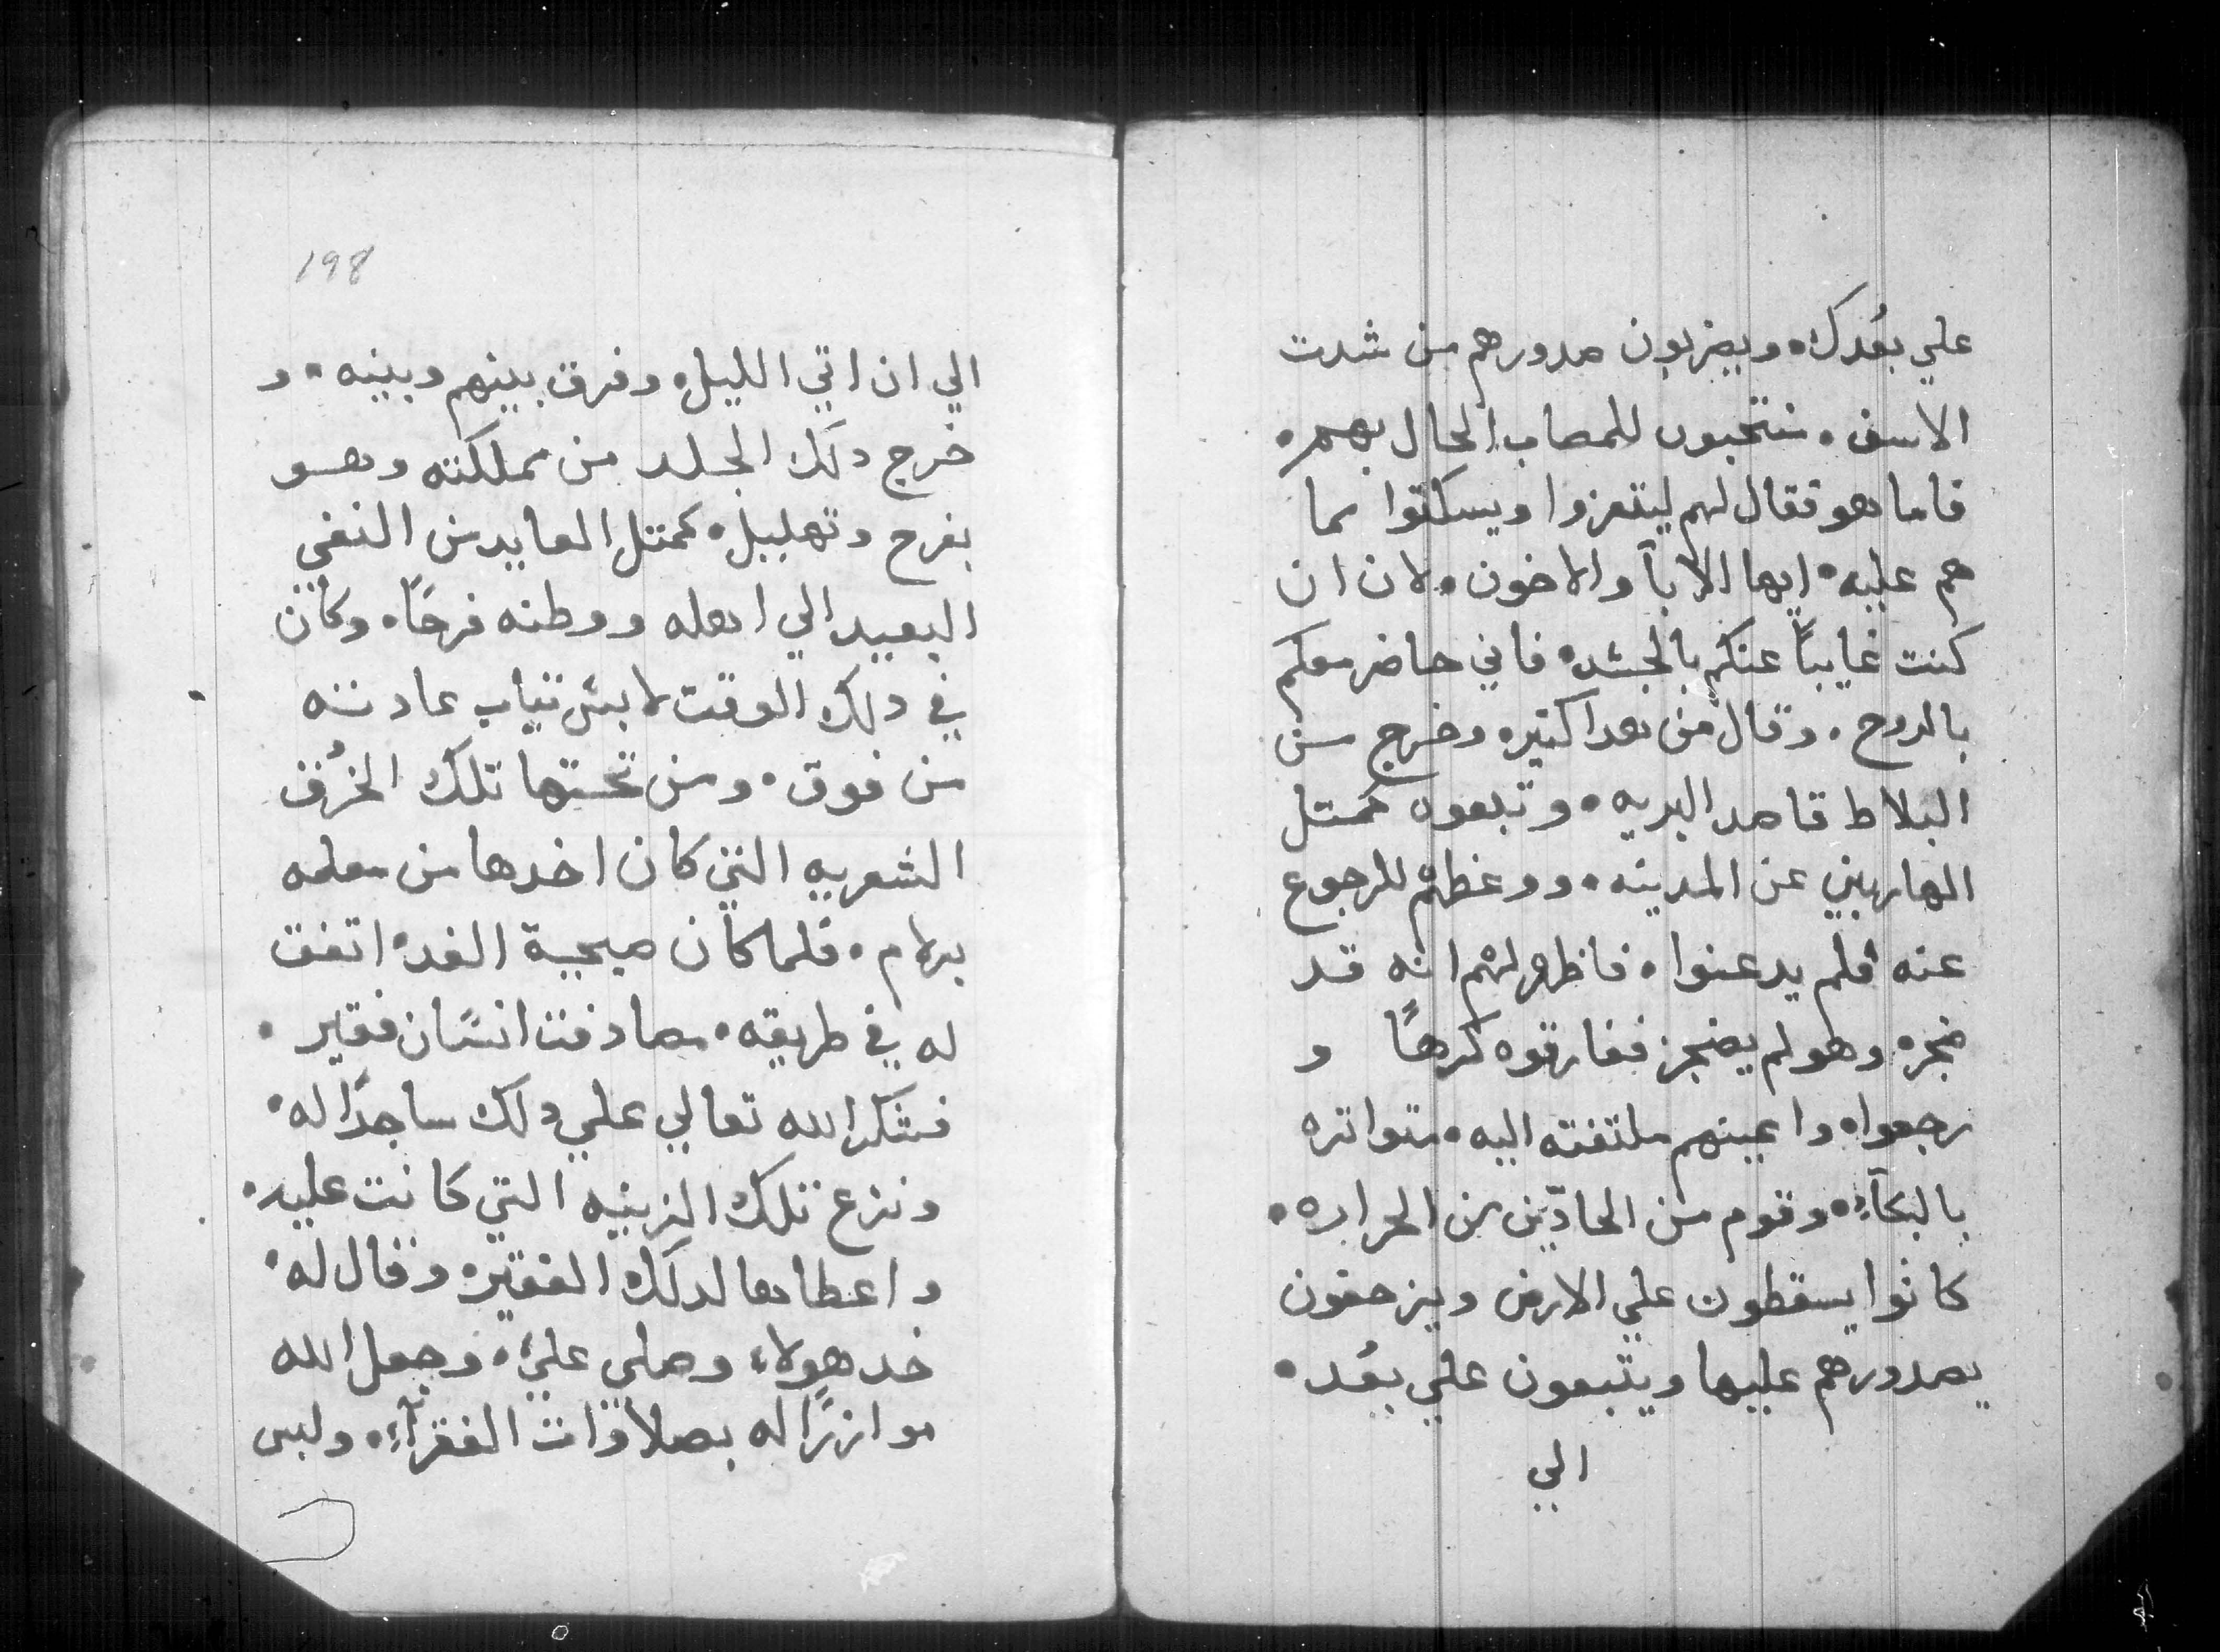 علي بعُدك. ويضربون صدورهم من شدت
الاسف. منتحبون للمصاب الحال بهم.
فاما هو فقال لهم ليتعزوا ويسكتوا مما
هم عليه. ايها الابآ والاخون. لان ان
كنت غايباً عنكم بالجسد. فاني حاضر معكم
بالروح. وقال من هدا كتير. وخرج من
البلاط قاصد البريه. وتبعوه كمتل
الهاربين عن المدينه. ووعظهم للرجوع
عنه فلم يدعنوا. فاظهر لهم انه قد
ضجر. وهو لم يضجر ففارقوه كرهاً و
رجعوا. واعينهم ملتفته اليه. متواتره
بالبكآء. وقوم من الحادّين من الحراره.
كانوا يسقطون علي الارض ويزحفون
بصدورهم عليها ويتبعون علي بعُد.
الي
198
الي ان اتي الليل. وفرق بينهم وبينه. و
خرج دلك الجلد من مملكته وهو
بفرح وتهليل. كمتل العايد من النفي
البعيد الي اهله ووطنه فرحًا. وكان
في دلك الوقت لابس تياب عادته
من فوق. ومن تحتها تلك الخرُق
الشعريه التي كان اخدها من معلمه
برلام. فلما كان صبيحة الغد. اتفق
له في طريقه. مصادفت انسان فقير.
فشكر الله تعالي علي دلك ساجدًا له.
ونزع تلك الزينيه التي كانت عليه.
واعطاها لدلك الفقير. وقال له.
خد هولاء وصلي عليّ. وجعل الله
موازرًا له بصلاوات الفقرآء. ولبس